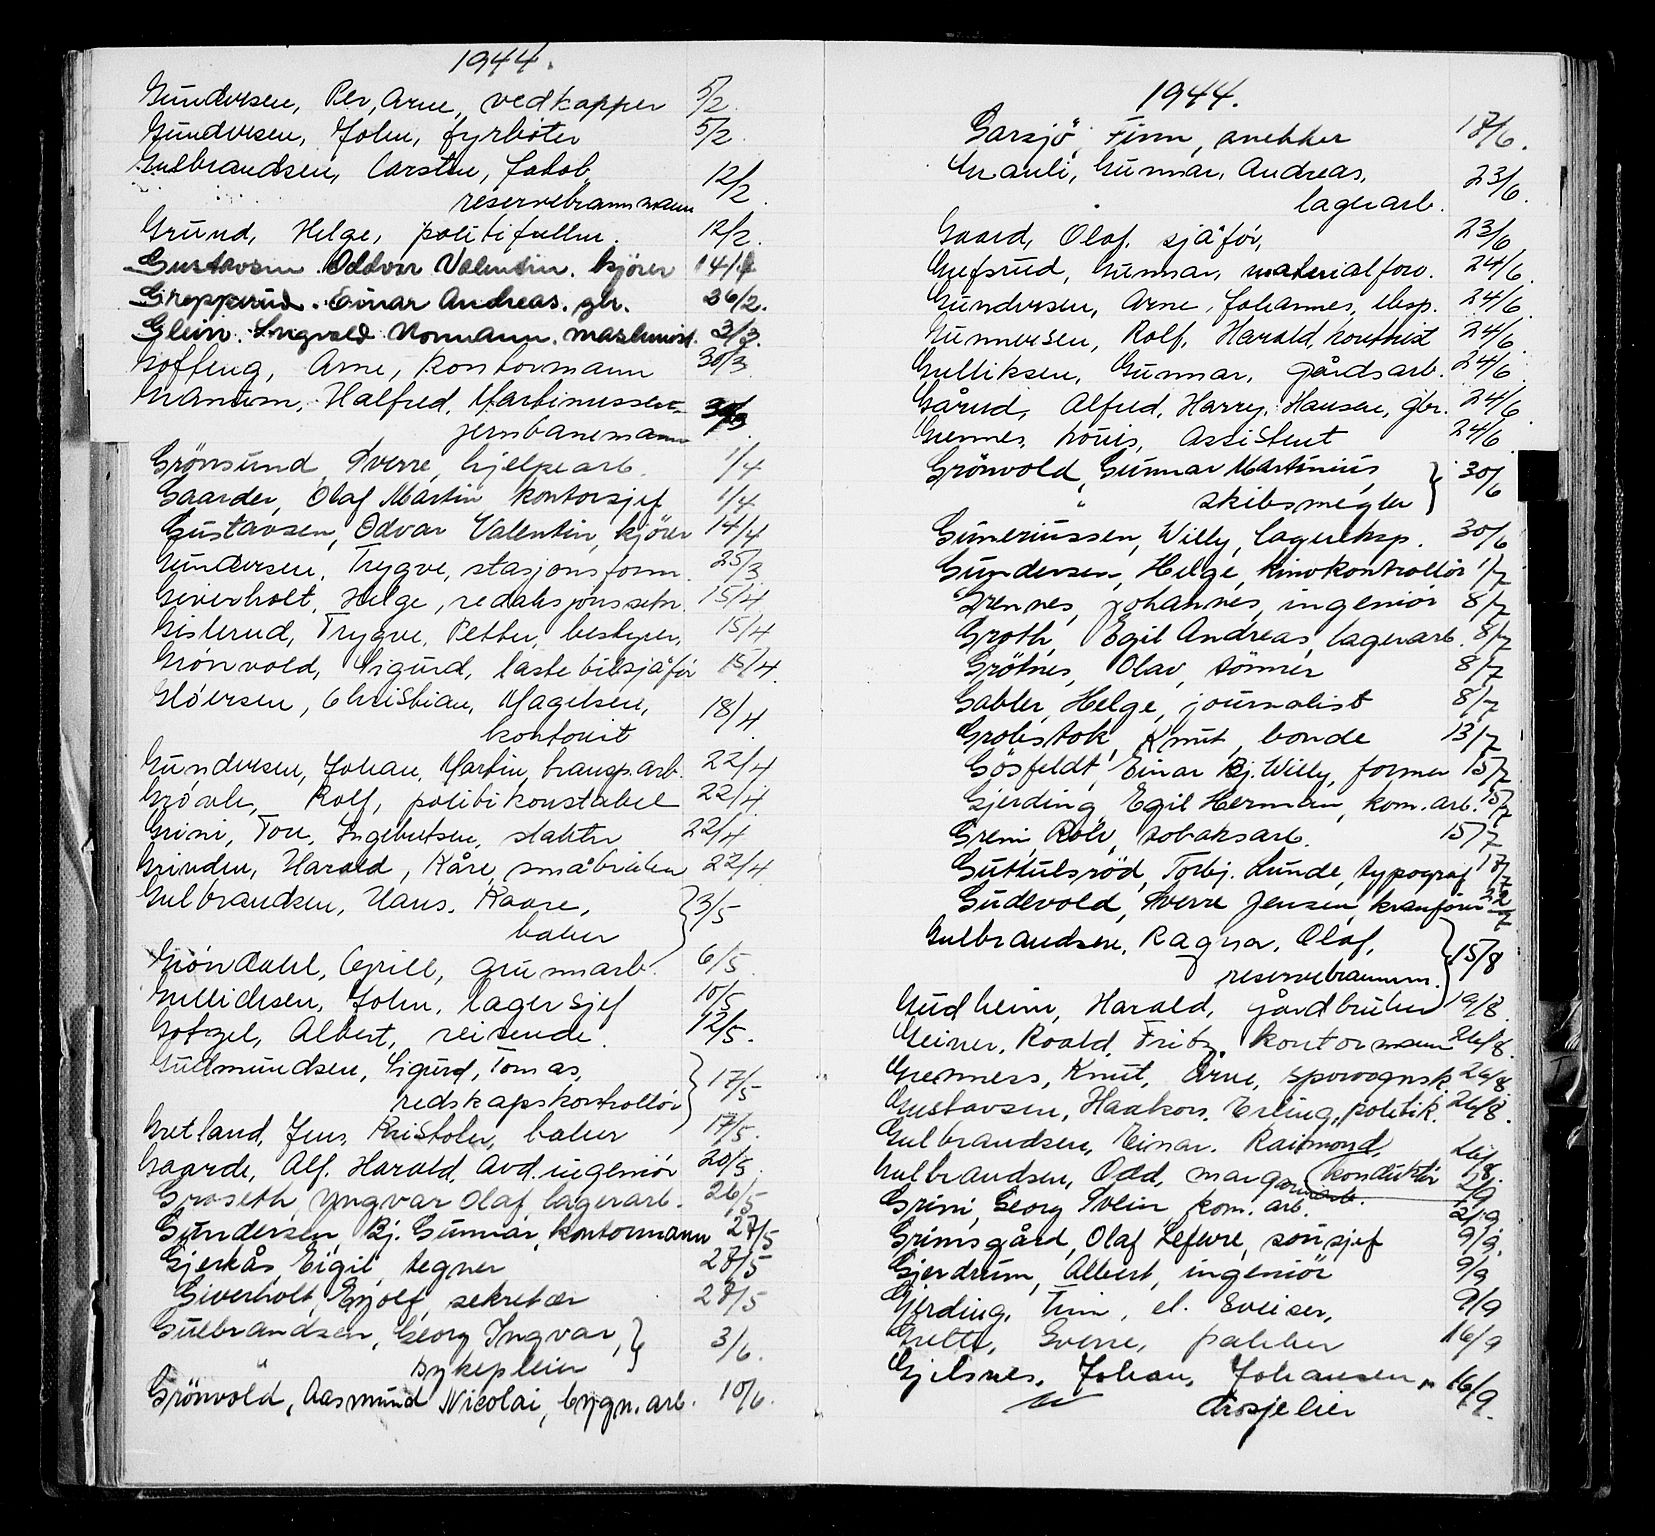 1944.
Gundersen, Per, Arne, vedkapper 5/2.
Gundersen, John, fyrböter 5/2.
Gulbrandsen, Carsten, Jakob, 12/2.
reservebrannmann
Grund, Helge, politifullm. 12/2.
Gustavsen. Oddvar Valentin. kjörer 14/4
Grepperud. Einar Andreas. gbr. 26/2.
Glein. Ingvald Normann. maskinist. 3/3.
Goffeng, Arne, kontormann 30/3
Granum, Halfred, Martinussen,
jernbanemann
Grönsund, Sverre, hjelpearb. 1/4
Gaarder, Olaf Martin kontorsjef 1/4
Gustavsen, Odvar Valentin, kjörer 14/4
Gundersen, Trygve, stasjonsform. 25/3
Giverholt, Helge, redaksjonssekr. 15/4
Gisterud, Trygve, Petter, bestyrer, 15/4
Grönvold, Sigurd, lastebilsjåför 15/4.
Glöersen, Christian, Magelsen, 18/4.
kontorist
Gundersen, Johan, Martin, transp.arb. 22/4
Rolf, politikonstabel 22/4
Grini, Tore, Ingebretsen, slakter 22/4
Grinden, Harald, Kåre, småbruker 22/4
Gulbrandsen, Hans, Kaare, 3/5
baker
Gröndahl, Cyrill, grunnarb. 6/5.
Gullicksen, John, lagersjef 10/5
Gotzel, Albert, reisende. 12/5.
Gudmundsen, Sigurd, Tomas, 17/5
redskapskontrollör
Gretland, Jens, Kristofer, baker 17/5.
Gaarde, Alf. Harald, Avd. ingeniör 20/5.
Graseth, Yngvar Olaf, lagerarb. 26/5
Gundersen, Bj. Gunnar, kontormann 27/5
Gjerkås, Eigil, tegner 27/5
Giverholt, Eyolf, sekretær 27/5
Gulbrandsen, Georg Ingvar, 3/6.
sykepleier
Grönvold, Aasmund Nicolai, bygn. arb. 10/6.
1944.
Garsjö, Finn, snekker 17/6.
Grauli, Gunnar, Andreas, 23/6.
lagerarb.
Gaard, Olaf, sjåför, 23/6
Grefsrud, Gunnar, materialforv. 24/6.
Gundersen, Arne, Johannes, eksp. 24/6
Gunnersen, Rolf, Harald, kontorist 24/6
Gulliksen, Gunnar, gårdsarb. 24/6
Gårud, Alfred, Harry, Hansen, gbr. 24/6
Grennes, Louis, Assistent 24/6
Grönvold, Gunnar Martinius, 30/6
" skibsmegler
Guneriussen, Willy, lagereksp. 30/6
Gundersen, Helge, kinokontrollör 1/7
Grennes, Johannes, ingeniör 8/7
Groth, Egil Andreas, lagerarb. 8/7
Grötnes, Olav, tömmer 8/7
Gabler, Helge, journalist 8/7
Grobstok, Knut, bonde 13/7
Gösfeldt, Einar Bj. Willy, former 15/7
Gjerding, Egil Herman, kom. arb. 15/7
Greni Rolv, tobaksarb. 15/7
Guttulsröd, Torbj. Lunde, typograf 17/7
Gudevold, Sverre Jensen, kranförer 22/7
Gulbrandsen, Ragnar, Olaf, 15/8
reservebrannm.
Gudheim, Harald, gårdbruker 19/8
Geiner, Roald, Fritz, kontormann 26/8.
Grenness, Knut, Arne, sporvognsk. 26/8
Gustavsen, Haakon, Erling, politik. 26/8.
Gulbrandsen, Einar. Raimond, 26/8.
konduktör
Gulbrandsen, Odd, margarinarb. 2/9
Grini, Georg Svein, kom. arb. 2/9
Grimsgård, Olaf Lefevre, sousjef 9/9.
Gjerdrum, Albert, ingeniör 9/9
Gjerding, Finn, el. sveiser, 9/9
Grette, Sverre, pakker 16/9
Gjelsnes, Johan, Johansen, 16/9.
drosjeeier